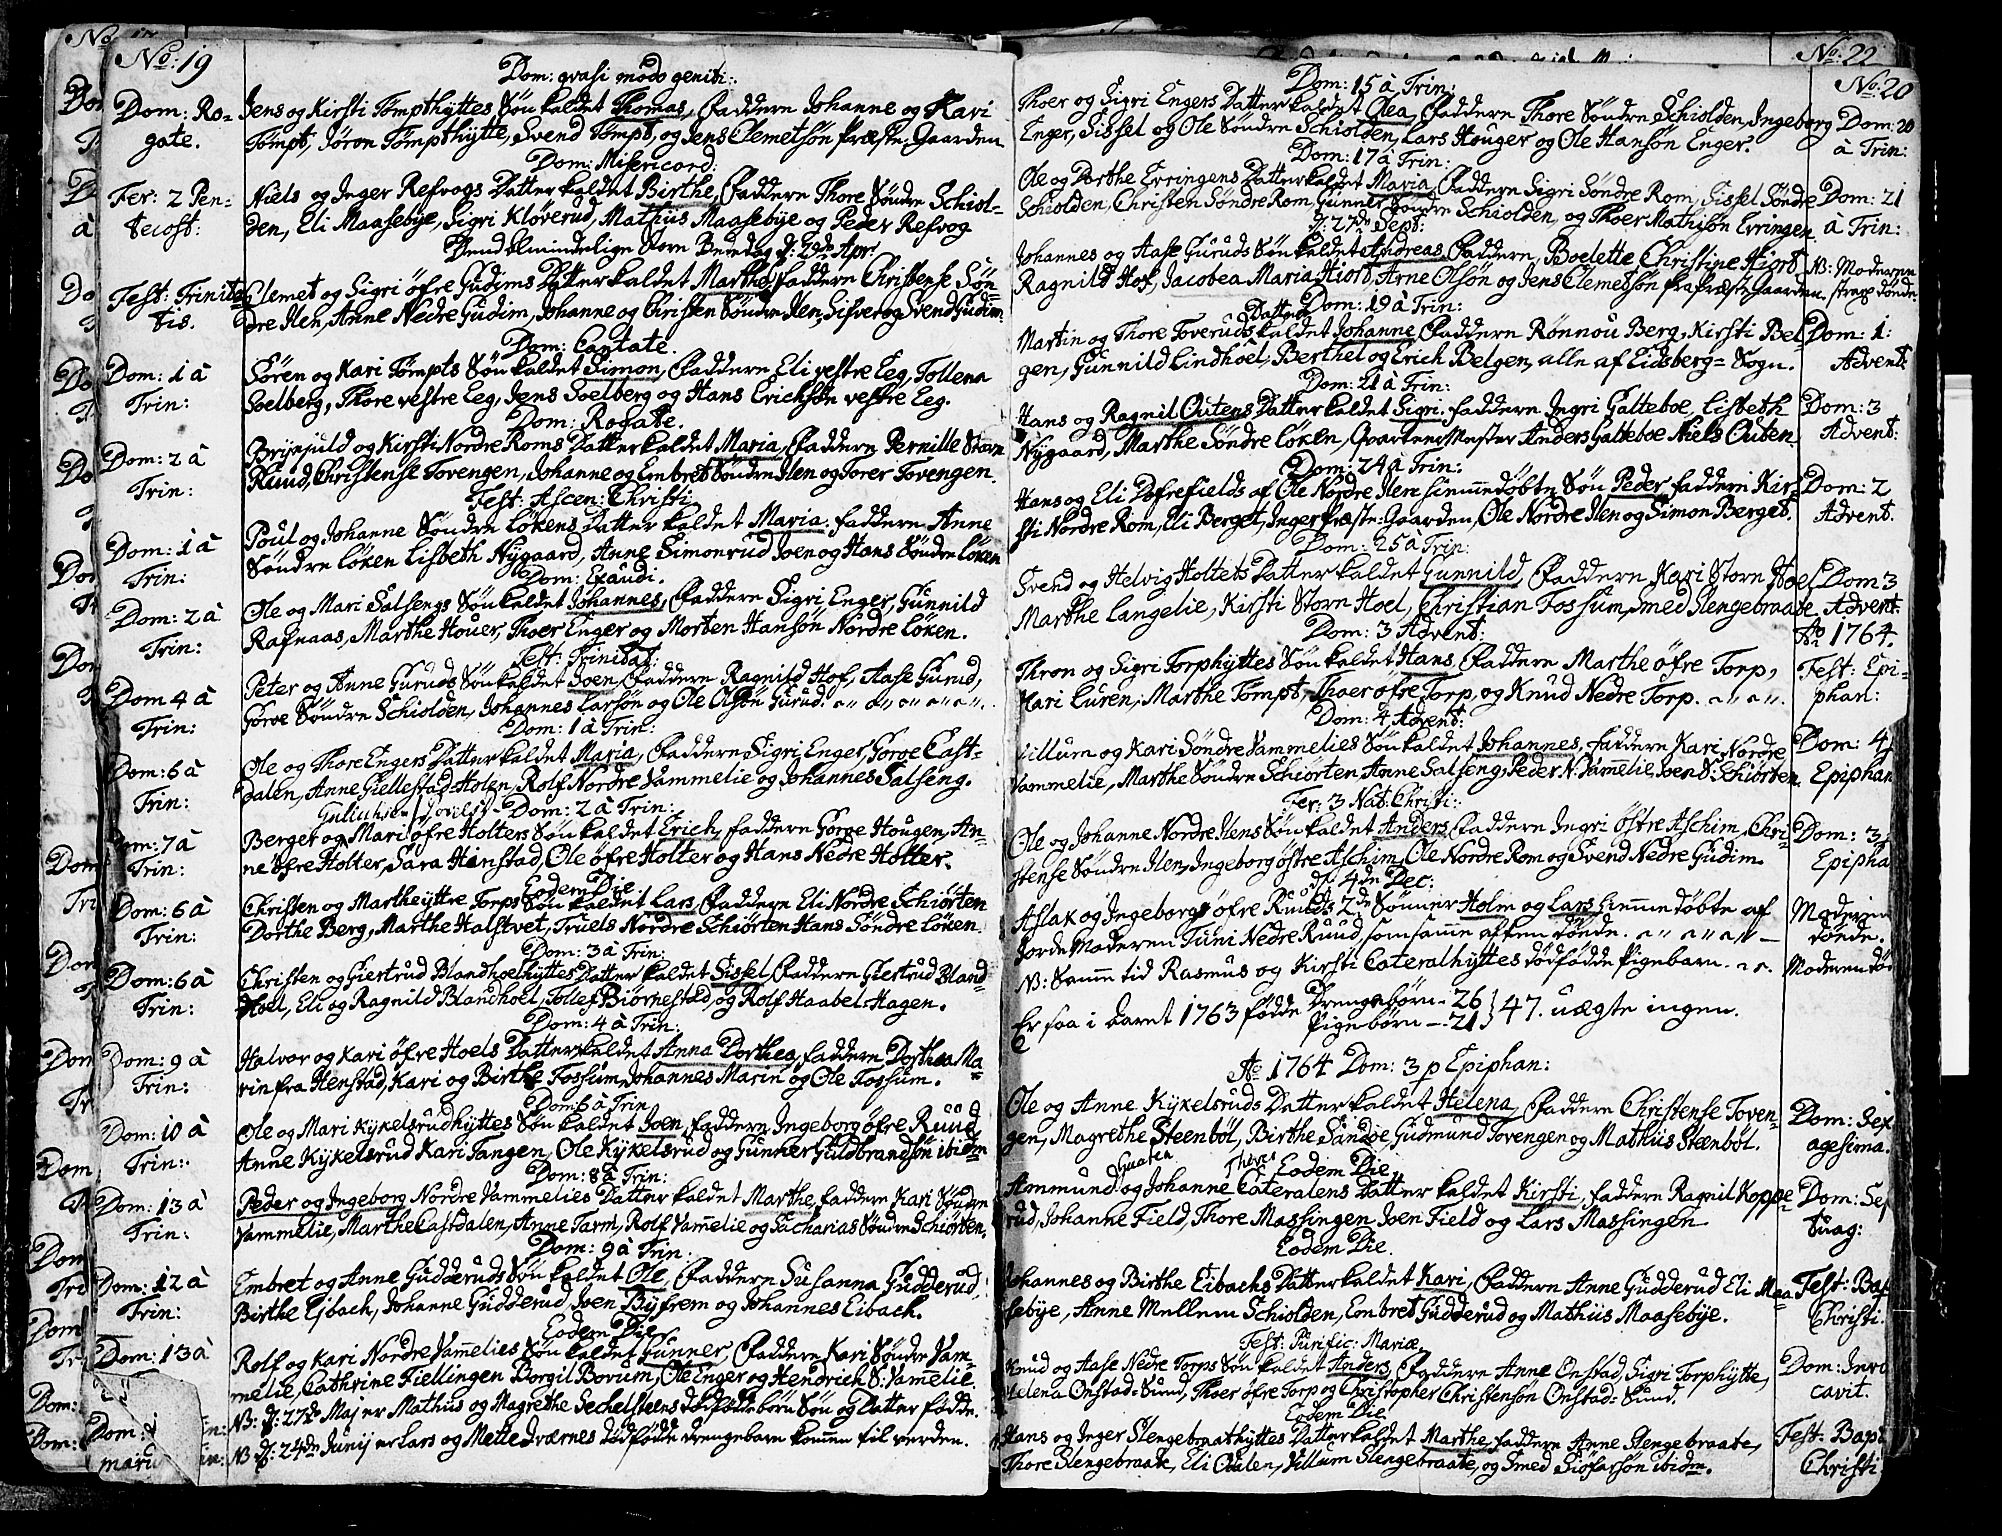 No: 19
Dom: qvasi modo geniti:
Dom: Ro-
gate.
Jens og Kirsti Tømpthyttes Søn kaldet Thomas, Faddern Johanne og Kari
Tømpt, Jøron Tømpthytte, Svend Tømpt, og Jens Clemetsøn Præste-Gaarden
Dom: Misericord:
Fer: 2 Pen-
tecost:
Niels og Inger Refvogs Datter kaldet Birthe, Faddern Thore Søndre Schiol-
den, Eli Maasebye, Sigri Kløverud, Mathus Maasebye og Peder Refvog
Dend almindelige Store Bededag d: 29de Apr:
Fest: Trinita-
tis.
Clemet og Sigri øfre Gudims Datter kaldet Marthe, Faddern Christense Søn-
dre Ilen, Anne Nedre Gudim, Johanne og Christen Søndre Ilen, Sifver og Svend Gudim.
Dom: Cantate.
Dom: 1 à
Trin:
Søren og Kari Tømpts Søn kaldet Simon, Faddern Eli vestre Eeg, Tollena
Soelberg, Thore vestre Eeg, Jens Soelberg og Hans Erichsøn vestre Eeg.
Dom: Rogate.
Dom: 2 à
Trin:
Brynjuld og Kirsti Nordre Roms Datter kaldet Maria, Faddern Pernille Storn
Ruud, Christense Tovengen, Johanne og Embret Søndre Ilen og Torer Tovengen.
Fest: Ascen: Christi
Dom: 1 à
Trin:
Poul og Johanne Søndre Løkens Datter kaldet Maria. Faddern Anne
Søndre Løken Lisbeth Nygaard, Anne Simonrud Joen og Hans Søndre Løken
Dom: Exaudi.
Dom: 2 à
Trin:
Ole og Mari Salsengs Søn kaldet Johannes, Faddern Sigri Enger, Gunnild
Rafnaas, Marthe Houer, Thoer Enger og Morten Hansøn Nordre Løken.
Fest: Trinitat:
Dom 4 à
Trin:
Peter og Anne Guruds Søn kaldet Joen, Faddern Ragnild Hof, Aase Gurud,
Goroe Søndre Schiolden, Johannes Larsøn og Ole Olsøn Gurud.
Dom: 1 à Trin:
Dom: 6 à
Trin:
Ole og Thore Engers Datter kaldet Maria, Faddern Sigri Enger, Goroe Cast-
dalen, Anne Giellestad-Holen, Rolf Nordre Vammelie og Johannes Salseng.
Dom: 2 à Trin:
Dom: 7 à
Trin:
Berger og Mari øfre Holters Søn kaldet Erich, Faddern Goroe Hougen, An-
ne øfre Holter, Sara Hanstad, Ole øfre Holter og Hans Nedre Holter.
Eodem Die.
Dom: 6 à
Trin:
Christen og Marthe yttre Torps Søn kaldet Lars, Faddern Eli Nordre Schiørten
Dorthe Berg, Marthe Halstvet, Truels Nordre Schiørten Hans Søndre Løken.
Dom: 3 à Trin:
Dom: 6 à
Trin:
Christen og Giertrud Blandhoelhyttes Datter kaldet Sissel, Faddern Giertrud Bland-
Hoel, Eli og Ragnild Blandhoel, Tollef Biørnestad, og Rolf Haabel-Hagen.
Dom: 4 à Trin:
Dom: 9 à
Trin:
Halvor og Kari øfre Hoels Datter kaldet Anna Dorthea, Faddern Dorthea Ma-
rin fra Henstad, Kari og Birthe Fossum, Johannes Marin og Ole Fossum.
Dom: 6 à Trin
Dom: 10 à
Trin:
Ole og Mari Kykelsrudhyttes Søn kaldet Joen, Faddern Ingeborg øfre Ruud,
Anne Kykelsrud Kari Tangen, Ole Kykelsrud og Gunner Guldbrandsøn ibidm
Dom: 8 à Trin:
Dom: 13 à
Trin:
Peder og Ingeborg Nordre Vammelies Datter kaldet Marthe, Faddern Kari Søndre
Vammelie, Marthe Castdalen, Anne Tarm, Rolf Vammelie og Zacharias Søndre Schiørten.
Dom: 9 à Trin:
Dom: 12 à
Trin:
Embret og Anne Gudderuds Søn kaldet Ole, Faddern Susanna Gudderud,
Birthe Eibach, Johanne Gudderud, Joen Byfrem og Johannes Eibach.
Eodem Die
Dom: 13 à
Rolf og Kari Nordre Vammelies Søn kaldet Gunner, Faddern Kari Søndre Vam-
melie, Cathrine Fiellingen Borgil Borum, Ole Enger og Hendrich S: Vamelie.
NB: d: 27de Maj er Mathus og Magrethe Sechelsteens dødfødde børn Søn og Datter fødde.
NB d: 24de Junij er Lars og Mette Iværnes dødfødde drengebarn kommen til verden.
No: 22
No: 20
Dom: 15 à Trin:
Thoer og Sigri Engers Datter kaldet Olea, Faddern Thore Søndre Schiolden, Ingeborg
Enger, Sissel og Ole Søndre Schiolden, Lars Houger og Ole Hansøn Enger.
Dom: 20
à Trin:
Dom: 17 à Trin:
Ole og Dorthe Erringens Datter kaldet Maria, Faddern Sigri Søndre Rom, Sissel Søndre
Schiolden, Christen Søndre Rom, Gunner Søndre Schiolden, og Thoer Mathisøn Erringen
Dom: 21
à Trin:
d: 27de Sept:
Johannes og Aase Guruds Søn kaldet Andreas, Faddern, Boelette Christine Hiort,
Ragnild Hof, Jacobea Maria Hiort, Arne Olsøn og Jens Clemetsøn fra præstegaarden.
NB: Moderen
strax døde
Dom: 19 à Trin:
Martin og Thore Toveruds Datter kaldet Johanne, Faddern Rønnou Berg, Kirsti Bel-
gen, Gunnild Lindhoel, Berthel og Erich Belgen, alle af Eidsberg-Sogn.
Dom: 1:
Advent
Dom: 21 à Trin:
Hans og Ragnil Outens Datter kaldet Sigri. Faddern Ingri Galteboe, Lisbeth
Nygaard, Marthe Søndre Løken, Qvarteer Mester Anders Galteboe Niels Outen
Dom: 3
Advent:
Dom: 24 à Trin:
Hans og Eli Dofrefields af Ole Nordre Ilen hiemmedøbte Søn Peder Faddern Kir-
sti Nordre Rom, Eli Berget, Inger Præste-Gaarden, Ole Nordre Ilen og Simon Berget.
Dom: 2
Advent.
Dom: 25 à Trin:
Svend og Helvig Holtets Datter kaldet Gunnild, Faddern Kari Storn Hoel,
Marthe Langelie, Kirsti Storn Hoel, Christian Fossum, Smed Slengebraate
Dom 3
Advent.
Dom: 3 Advent:
Ao 1764.
Thron og Sigri Torphyttes Søn kaldet Hans, Faddern Marthe øfre Torp,
Kari Luren, Marthe Tømpt, Thoer øfre Torp, og Knud Nedre Torp.
Fest: Epi-
phan:
Dom: 4 Advent:
Villum og Kari Søndre Vammelies Søn kaldet Johannes, Faddern Kari Nordre
Vammelie, Marthe Søndre Schiørten, Anne Salseng, Peder N: Vammelie Joen S: Schiørten.
Dom: 4
Epiphan
Fer: 3 Nat: Christi:
Ole og Johanne Nordre Ilens Søn kaldet Anders, Faddern Ingri østre Aschim, Chri-
stense Søndre Ilen, Ingeborg østre Aschim, Ole Nordre Rom og Svend Nedre Gudim.
Dom: 3
Epipha
d: 4de Dec:
Aslak og Ingeborg øfre Ruuds 2de Sønner Holm og Lars hiemmedøbte af
Jorde Moderen Tuni Nedre Ruud, som samme aften døde.
Moderen
døde.
NB: Samme tid Rasmus og Kirsti Cateralhyttes dødfødde Pigebarn.
Moderen død
Er saa i Aaret 1763 fødde Drengebørn - 26
Pigebørn - 21 } 47. uægte ingen.
Ao 1764 Dom: 3 p Epiphan:
Ole og Anne Kykelsruds Datter kaldet Helena, Faddern Christense Toven-
gen, Magrethe Steenbøl, Birthe Sandøe, Gudmund Tovengen og Mathus Steenbøl.
Dom: Sex
agesima.
Eodem Die.
Ammund og Johanne Cateralens Datter kaldet Kirsti, Faddern Ragnil Koppe-
rud, Johanne Field, Thore Massingen, Joen Field og Lars Massingen
Dom: Sep
tuag:
Eodem Die.
Johannes og Birthe Eibachs Datter kaldet Kari, Faddern Anne Gudderud Eli Maa-
sebye, Anne Mellem Schiolden, Embret Gudderud og Mathus Maasebye.
Fest: Bap
Christi.
Fest: Purific: Mariæ.
Knud og Aase Nedre Torps Søn kaldet Anders, Faddern Anne Onstad, Sigri Torphytte,
Helena Onstad-Sund, Thoer øfre Torp og Christopher Christensøn Onstad-Sund.
Dom: Invo
cavit.
Eodem Die
Hans og Inger Slengebraathyttes Datter kaldet Marthe, Faddern Anne Slengebraate,
Thore Slengebraate, Eli Odalen, Villum Slengebraate, og Smed Siofarsøn ibidm.
Fest: Bapt
Christi